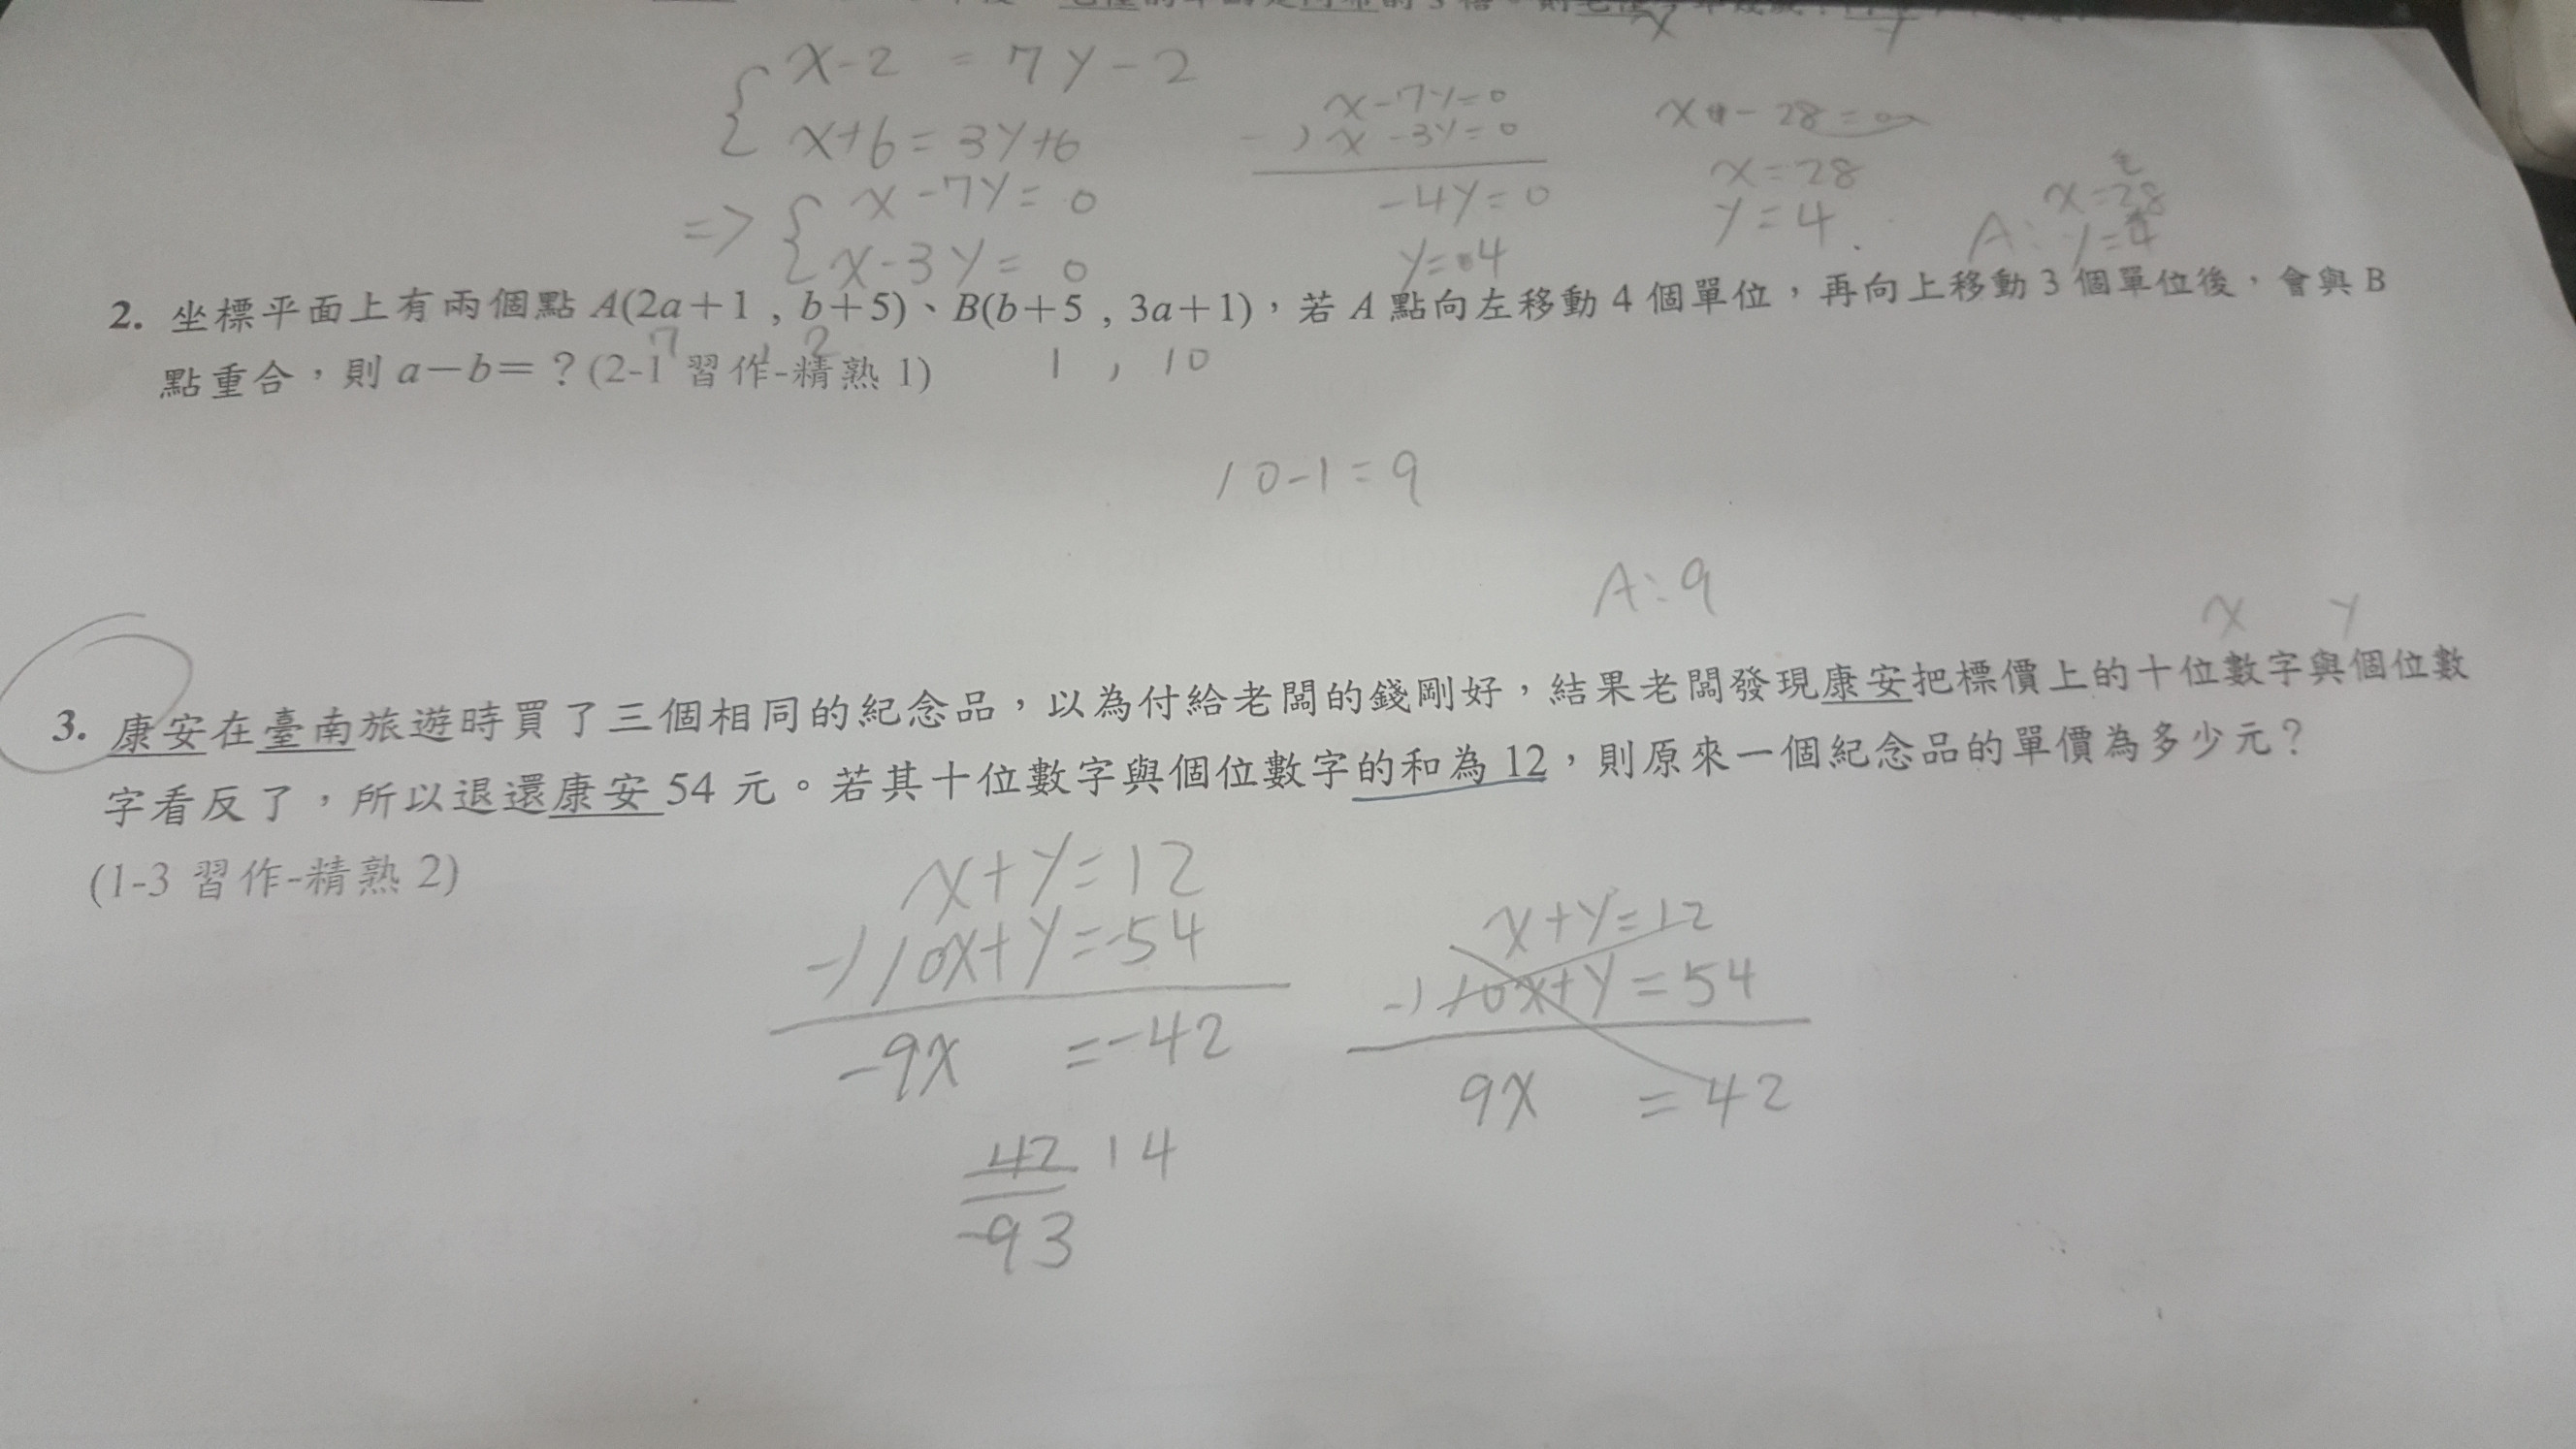 x-2 = 7y-2
x+6 = 3y+6
=> x-7y= 0
x-3y= 0
x-7y=0
-) x-3y=0
-4y=0
y=4
x-28=0
x=28
y=4
A: x=28
y=4
2. 坐標平面上有兩個點 A(2a+1 , b+5)、B(b+5 , 3a+1),若 A 點向左移動 4 個單位,再向上移動 3 個單位後,會與 B
點重合,則 a-b=?(2-1 習作-精熟 1)
7 , 2
1 , 10
10-1=9
A:9
x y
3. 康安在臺南旅遊時買了三個相同的紀念品,以為付給老闆的錢剛好,結果老闆發現康安把標價上的十位數字與個位數
字看反了,所以退還康安 54 元。若其十位數字與個位數字的和為 12,則原來一個紀念品的單價為多少元?
(1-3 習作-精熟 2)
x+y=12
-) 10x+y=54
-9x =-42
42 14
-9 3
x+y=12
-) 10x+y=54
9x =42